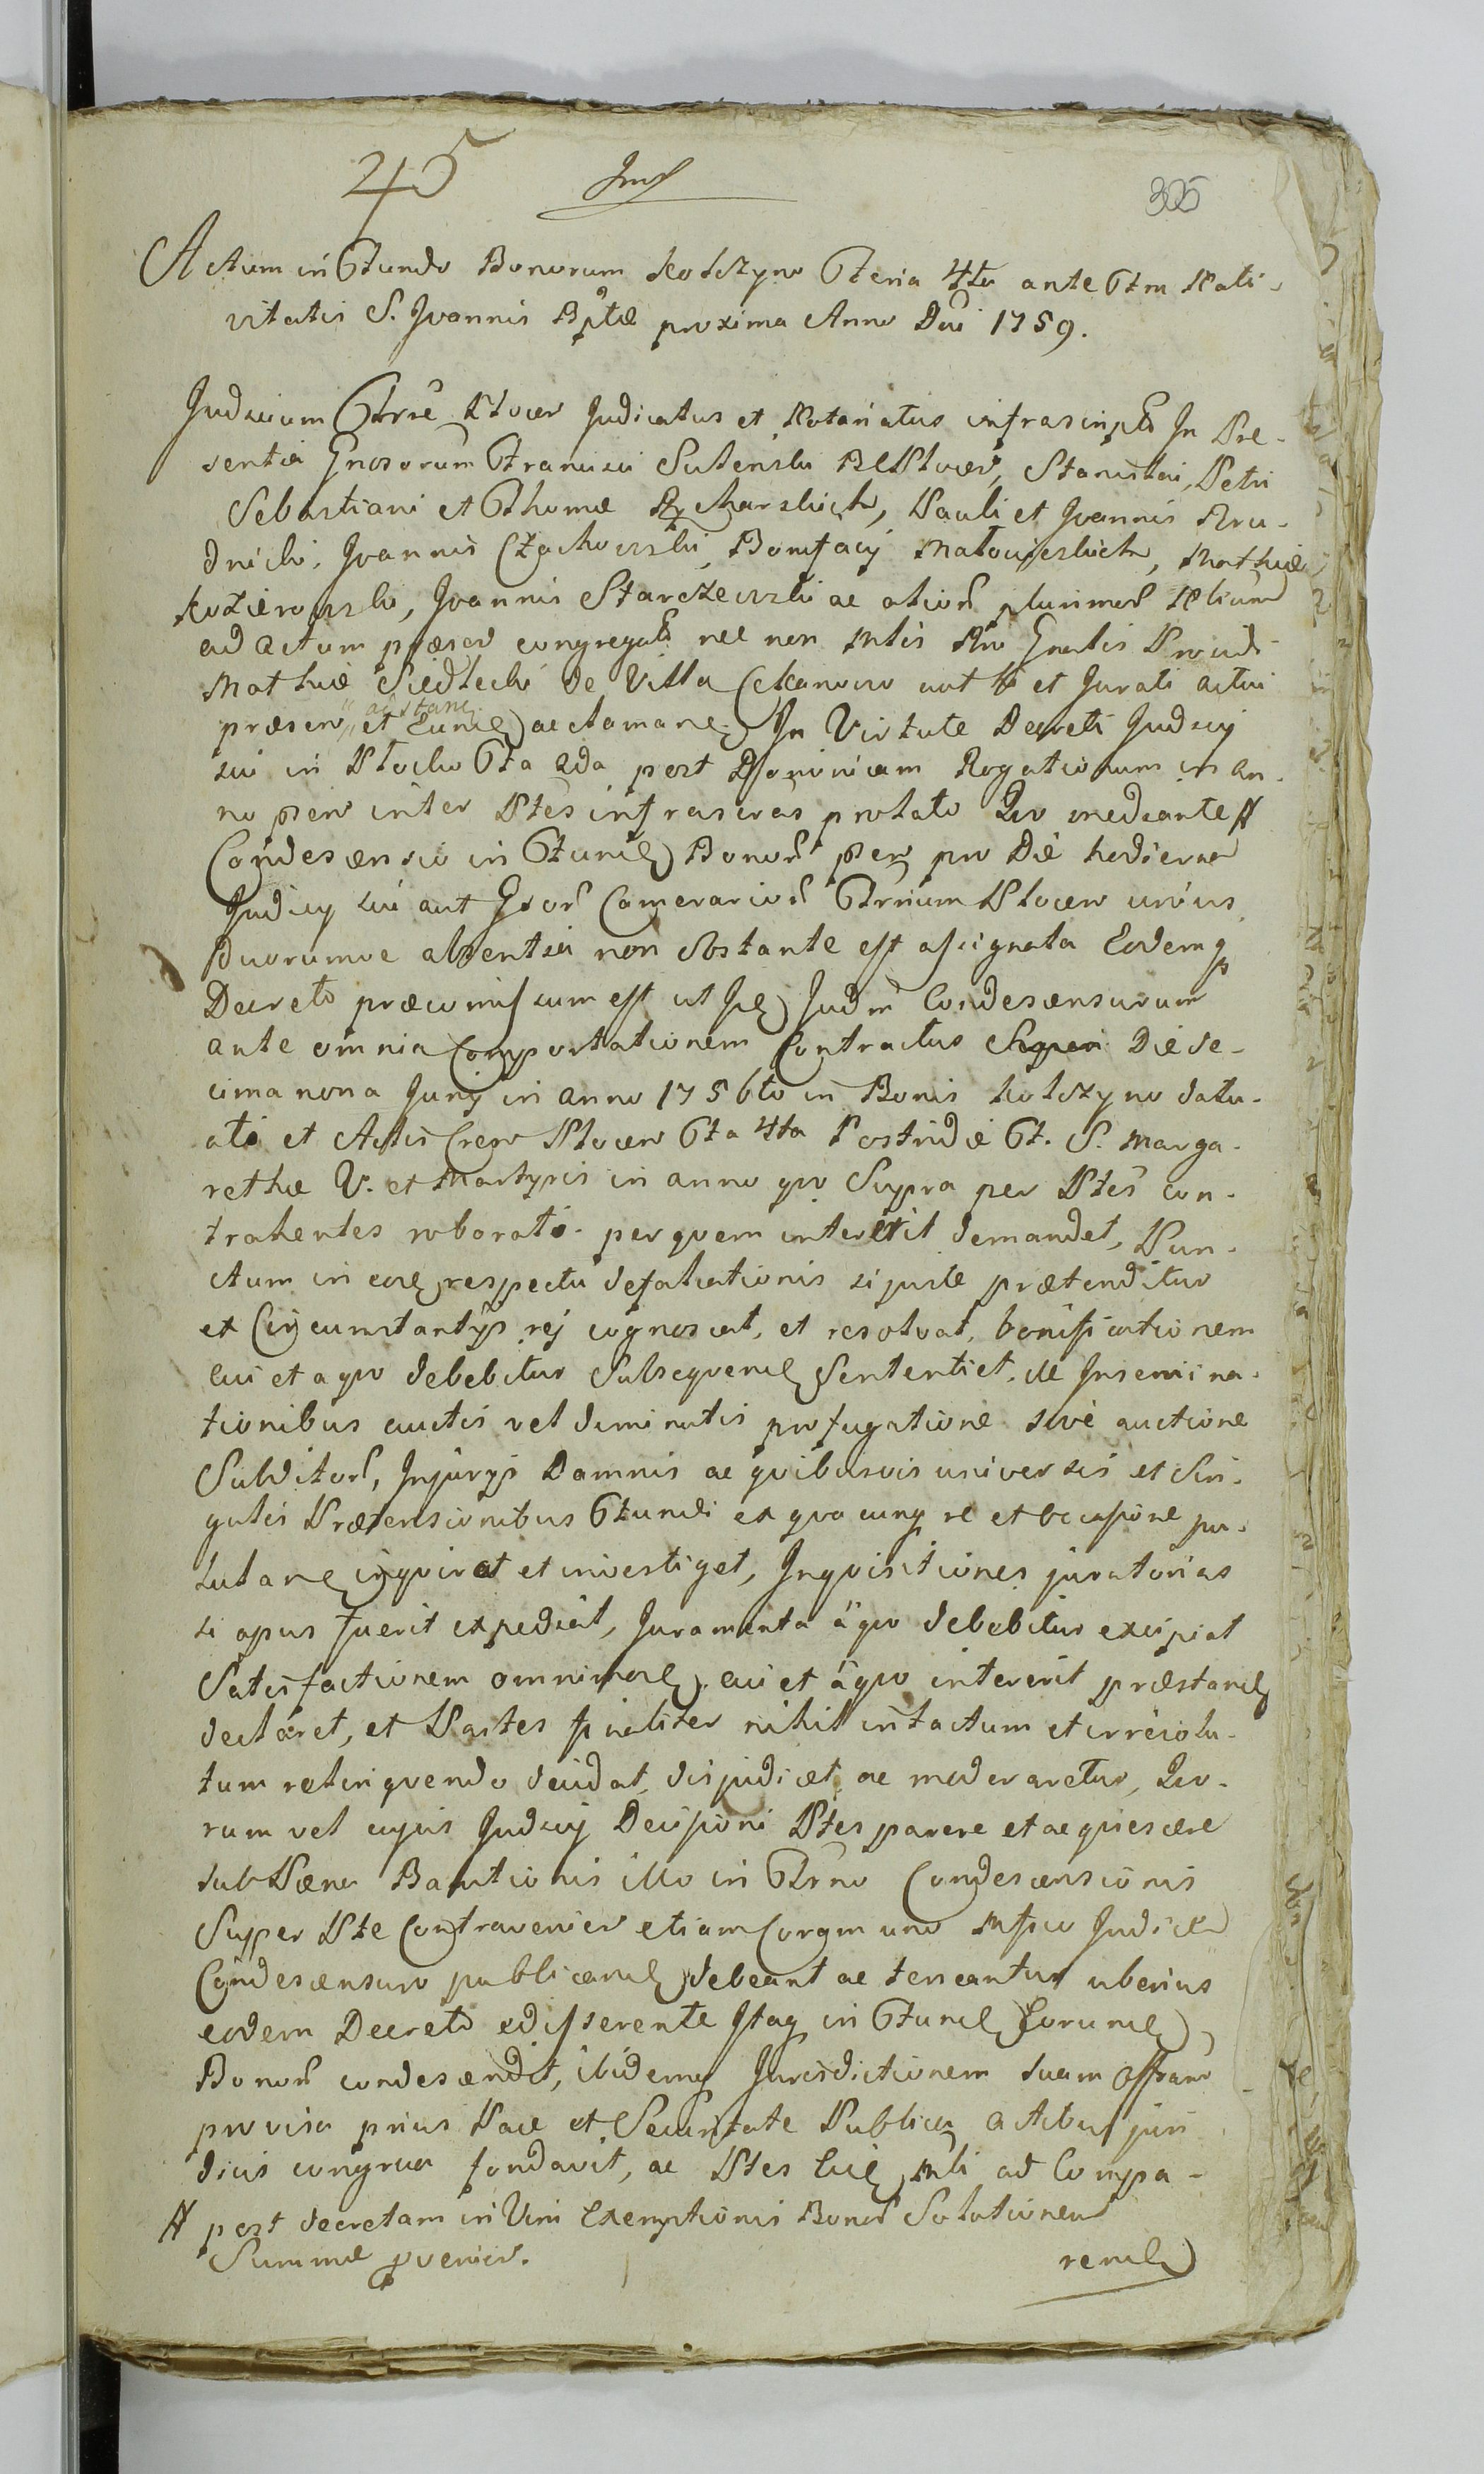 45 Imf 305
Actum in Fundo Bonorum Kolczyno Feria 4ta ante Ftm Nati-
vitatis S. Joannis Bptæ proxima Anno Dni 1759.
Judicium Trre Plocen Judicatus et Notariatus infrascript In Præ-
sentia Gnosorum Francisci Sutenski Plocen, Stanislai, Petri
Sebastiani et Thomæ Rycharskich, Pauli et Joannis Bru-
dnicki, Joannis Czachowski, Bonifacij Matowieskich, Mathiæ
Kozierowski, Joannis Starczewski ac alior plurimor Nlium
ad actum præsen congregat nec non Mlis Pro Gnalis Provid
Mathiæ Siedlecki de Villa Ckanowo aut et Jurati actui
præsen et astan Eund acclaman. In Virtute Decreti Judicij
sui in Plocko Fa 2da post Dominicam Rogationum in an-
no psen inter Ptes infrascras prolato Quo mediante #
Condescensio in Fund Bonor psen pro Die hodierna
Judicij sui aut Gsor Camerarior Trrium Plocen unius
duorumve absentia non obstante est assignata Eodemq
Decreto præcomissum est ut Judm Condescensurum
ante omnia Comportationem Contractus Super Die de-
cima nona Junij in anno 1756to in Bonis Kolczyno datu-
ati et Actis Cren Plocen Fa 4ta Postridie F. S. Marga-
rethæ V. et Martyris in anno quo Supra per Ptes con-
trahentes roborato. per quem intererit demandet, Pun-
ctum in eod respectu defalcationis si juste prætenditur
et Circumstantijs rej cognoscat, et resolvat, bonificationem
cui et a quo debebitur Subsequend Sententiet, de Insemina-
tionibus auctis vel diminutis profugatione sive auctione
Subditor, Injurijs Damnis ac quibusvis universis et Sin-
gulis Prætensionibus Fundi ex quacunq re et occasione pu-
lulan inquirat et investiget, Inquisitiones juratorias
si opus fuerit expediat, Juramenta a quo debebitur excipiat
Satisfactionem omnimod cui et a quo intererit præstand
declaret, et Partes finaliter nihil intactum et irresolu-
tum relinquendo decidat, disjudicet ac moderaretur, Quo-
rum vel cujus Judicij Decisioni Ptes parere et acquiescere
sub Pæna Banitionis illo in Trno Condescensionis
Super Pte Contravenien etiam Coram uno Mfico Judice
Condescensuro publicand debeant ac teneantur uberius
eodem Decreto edisserente Itaq in Fund Eorund
Bonor condescendit, ibidemq Jurisdictionem suam Offram
provisa prius Pace et Securitate Publica actibus juri
dicis congrua fundavit, ac Ptes Mli ad Compa-
# post decretam in Vim Exemptionis Bonor Solutionem
Summæ pvenien.
rend